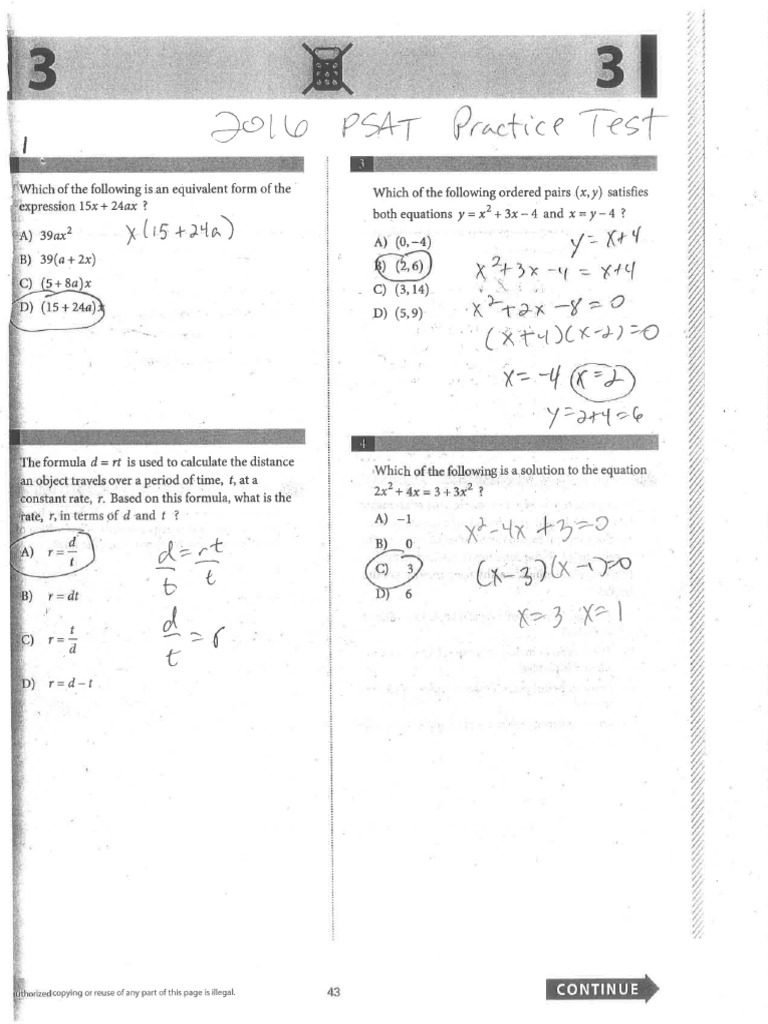 3 3
2016 PSAT Practice Test
1
Which of the following is an equivalent form of the
expression 15x + 24ax ?
A) 39ax²
x(15 + 24a)
B) 39(a + 2x)
C) (5 + 8a)x
D) (15 + 24a)x
The formula d = rt is used to calculate the distance
an object travels over a period of time, t, at a
constant rate, r. Based on this formula, what is the
rate, r, in terms of d and t ?
A) r = d/t
d = rt
t t
B) r = dt
d/t = r
C) r = t/d
D) r = d – t
3
Which of the following ordered pairs (x, y) satisfies
both equations y = x² + 3x – 4 and x = y – 4 ?
y = x+4
A) (0, –4)
B) (2, 6)
x²+3x-4 = x+4
C) (3, 14)
x²+2x-8=0
D) (5, 9)
(x+4)(x-2)=0
x=-4 x=2
y=2+4=6
4
Which of the following is a solution to the equation
2x² + 4x = 3 + 3x² ?
A) –1
x²-4x+3=0
B) 0
C) 3
(x-3)(x-1)=0
D) 6
x=3 x=1
uthorized copying or reuse of any part of this page is illegal.
43
CONTINUE